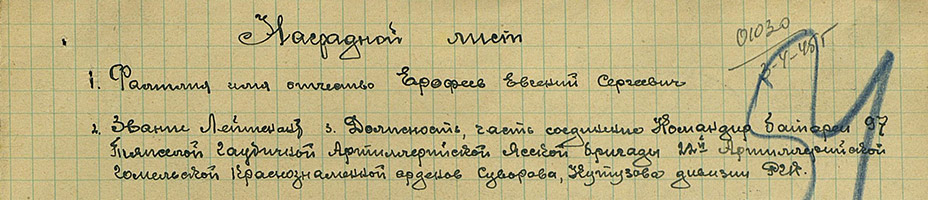 Наградной лист
01030
3-4-45г
1. Фамилия имя отчество Ерофеев Евгений Сергеевич
2. Звание Лейтенант 3. Должность, часть соединение Командир батареи 97
Тяжелой Гаубичной Артиллерийской Ясской бригады 22й Артиллерийской
Гомельской Краснознаменной орденов Суворова, Кутузова дивизии РГК.